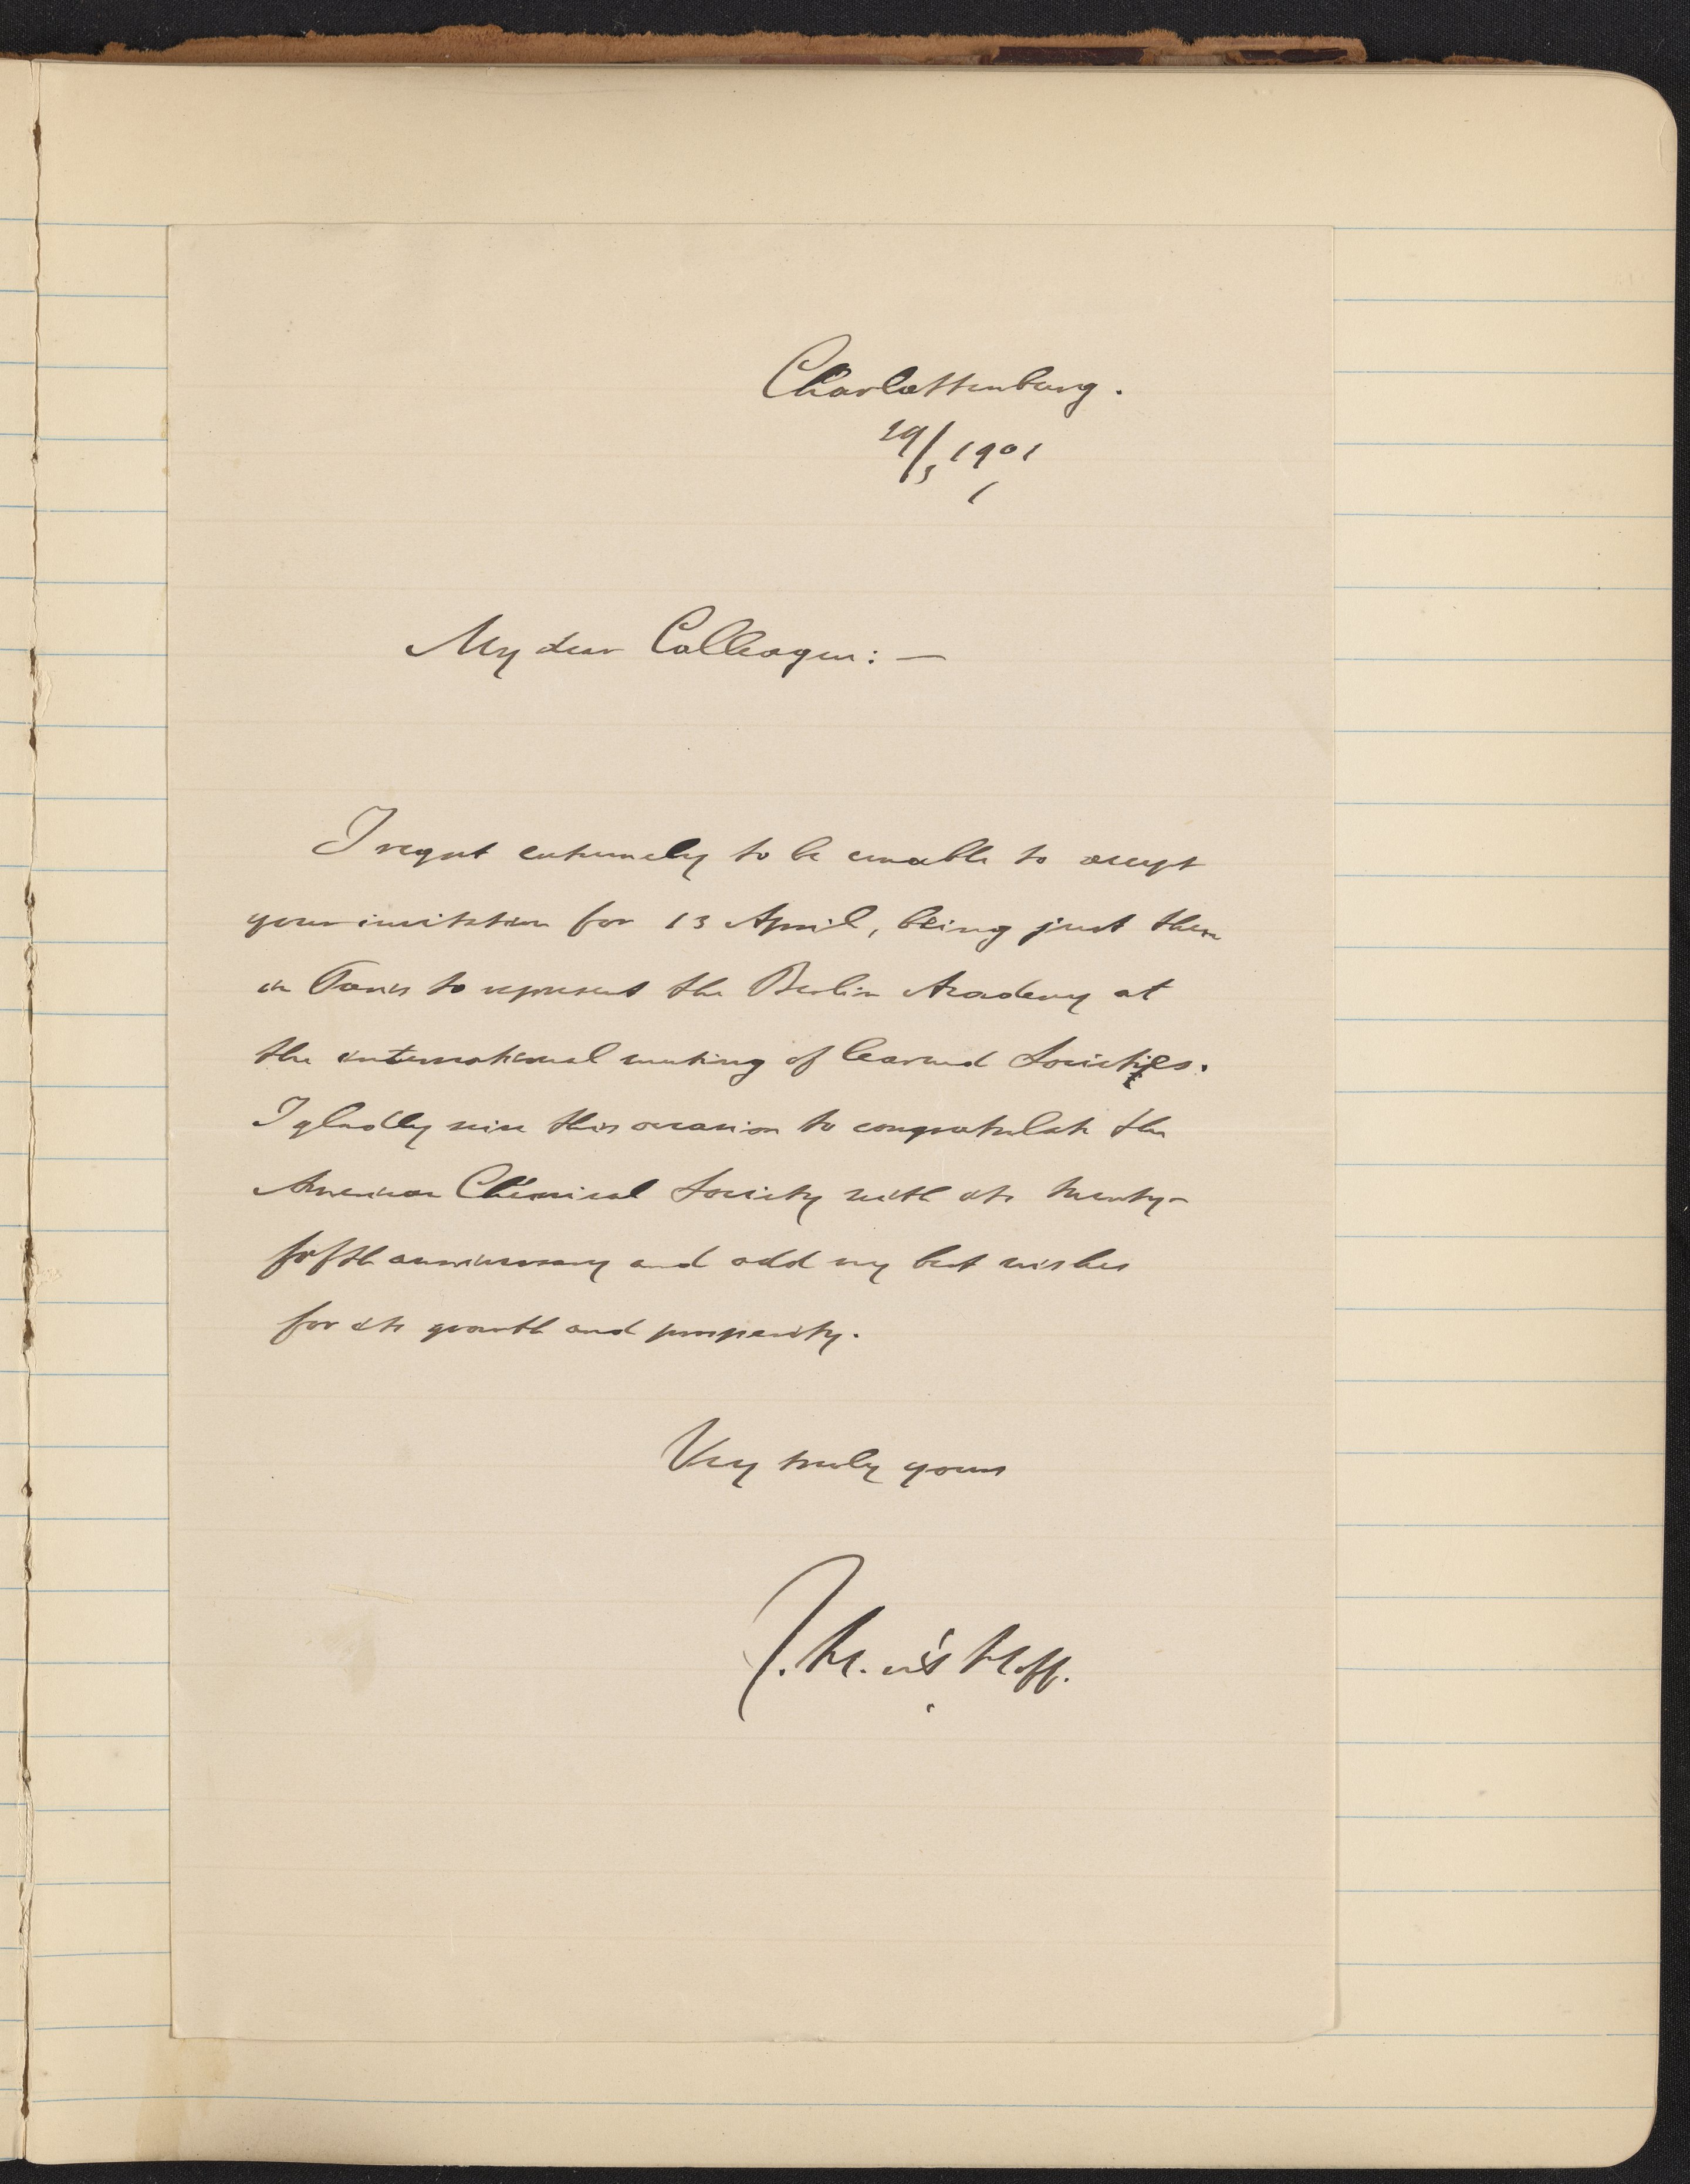 Charlottenburg.
29/3 1901
My dear Colleague: —
I regret extremely to be unable to accept
your invitation for 13 April, being just then
in Paris to represent the Berlin Academy at
the international meeting of learned Societies.
I gladly seize this occasion to congratulate the
American Chemical Society with its twenty-
fifth anniversary and add my best wishes
for its growth and prosperity.
Very truly yours
J. H. van't Hoff.